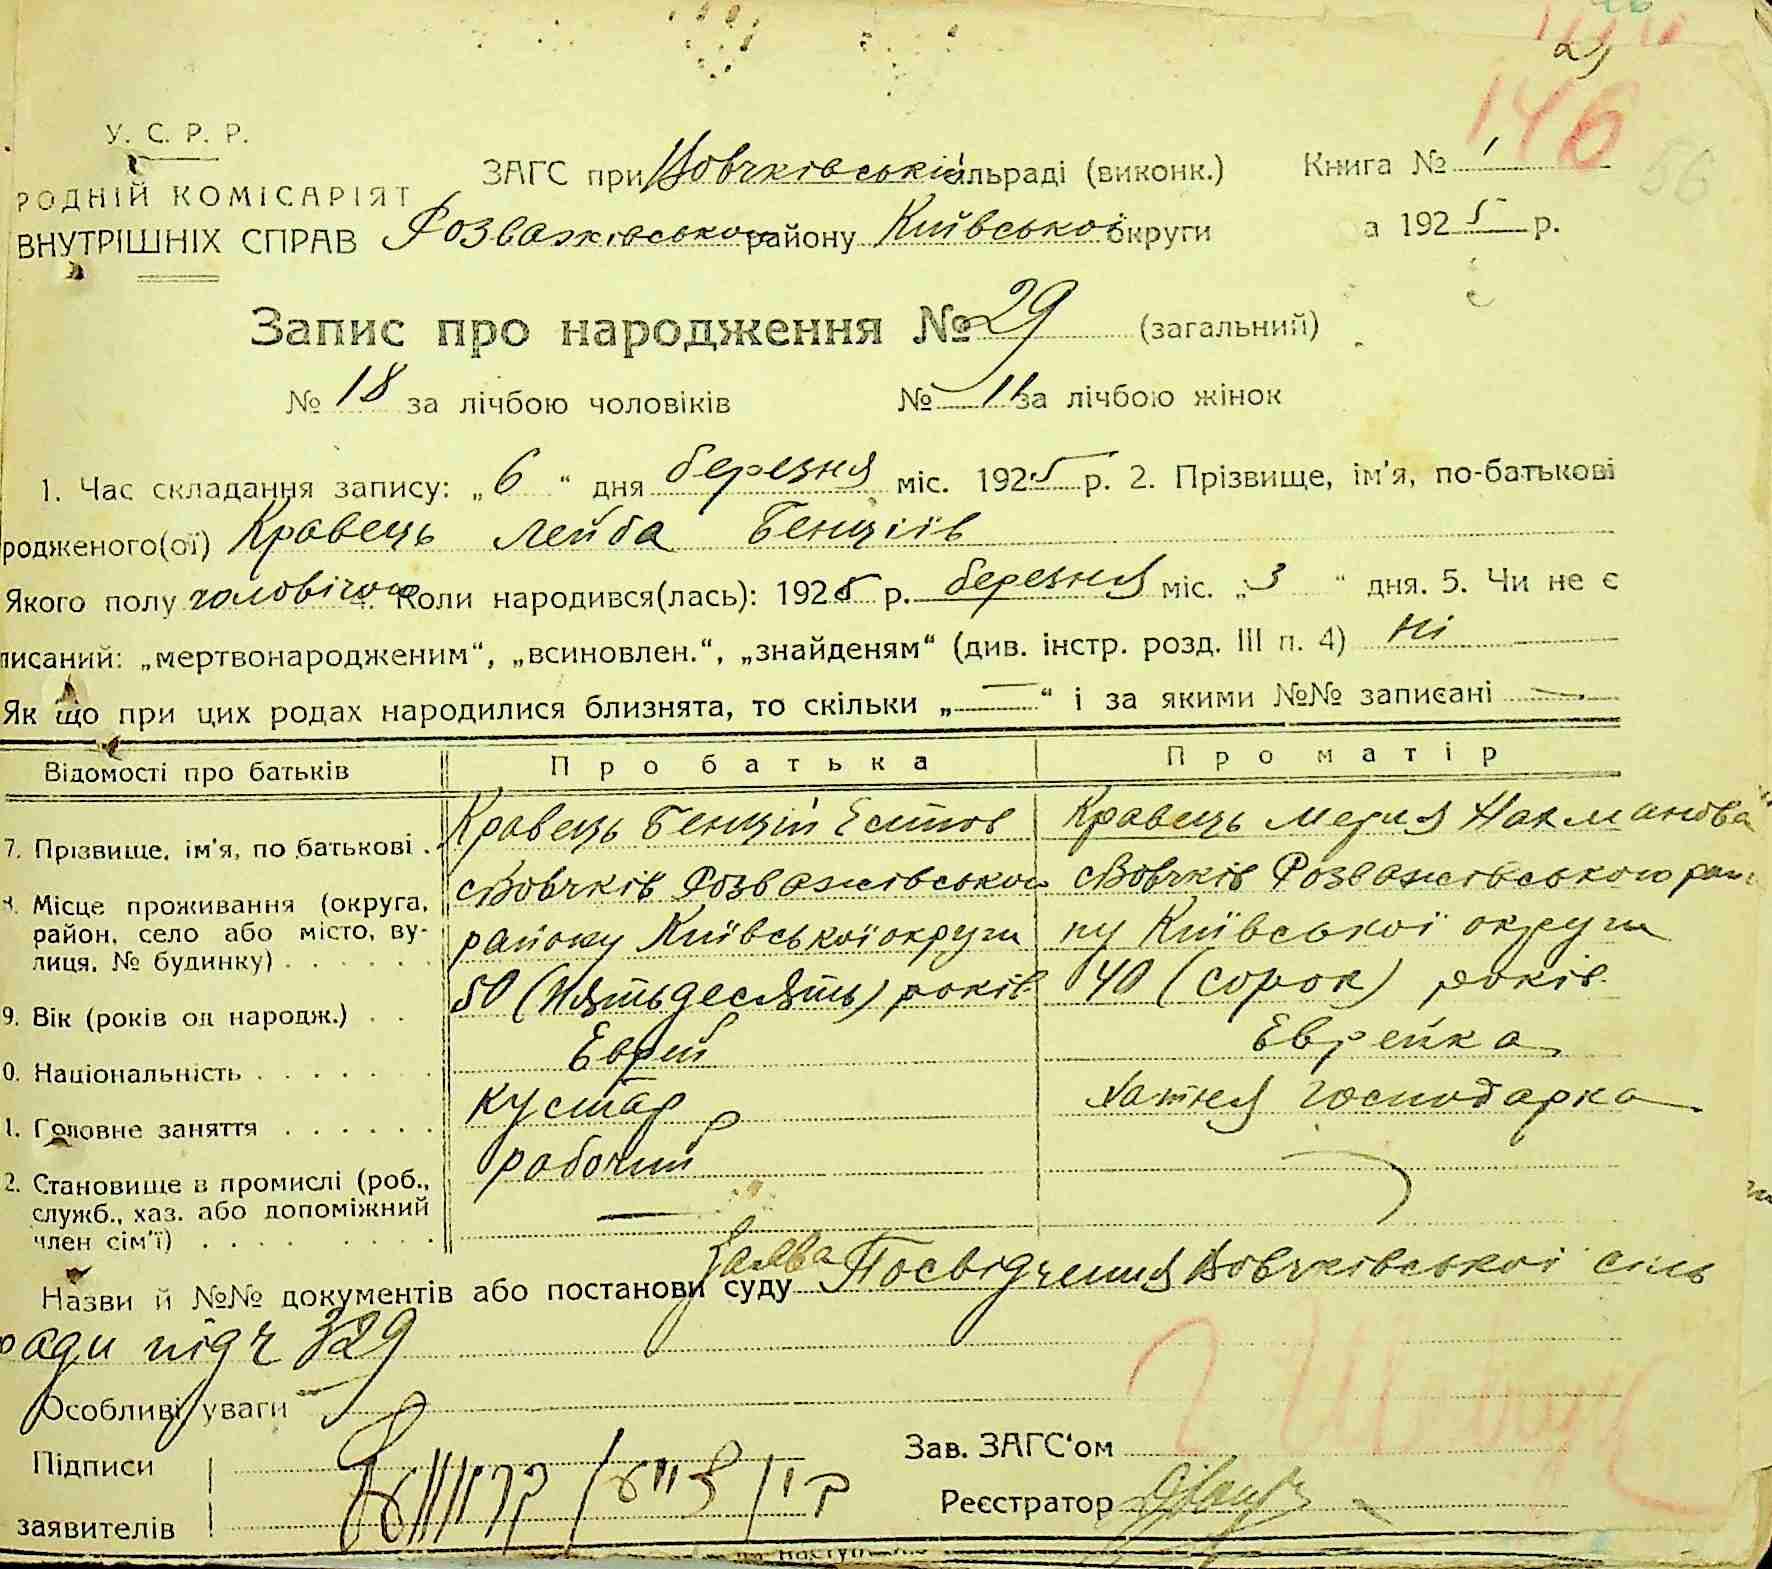 146
56
У. С. Р. Р.
РОДНІЙ КОМІСАРІЯТ
ВНУТРІШНІХ СПРАВ
ЗАГС при Вовчківській сільраді (виконк.) Книга № 1
Розважівського району Київської округи а 1925 р.
Запис про народження № 29 (загальний)
№ 18 за лічбою чоловіків № 11 за лічбою жінок
1. Час складання запису: „6“ дня березня міс. 1925 р. 2. Прізвище, ім'я, по-батькові
родженого(ої) Кравець Лейба Бенціїв
Якого полу чоловічого Коли народився(лась): 1925 р. березня міс. „3“ дня. 5. Чи не є
писаний: „мертвонародженим“, „всиновлен.“, „знайденям“ (див. інстр. розд. III п. 4) Ні
Як що при цих родах народилися близнята, то скільки „—“ і за якими №№ записані —
Відомості про батьків Про батька Про матір
7. Прізвище, ім'я, по батькові . Кравець Бенцій Кравець Нахманова
8. Місце проживання (округа, район, село або місто, вулиця, № будинку) . . . . . . с Вовчків Розважівського району Київської округи с Вовчків Розважівського району Київської округи
9. Вік (років од народж.) . . 50 (Пятьдесять) років 40 (сорок) років
0. Національність . . . . . . . Еврей Еврейка
1. Головне заняття . . . . . . кустар хатня господарка
2. Становище в промислі (роб., служб., хаз. або допоміжний член сім'ї) . . . . . . . . . рабочий
Назви й №№ документів або постанови суду Заява Посвідчення Вовчківської сіль
ради під ч 329
Особливі уваги
Підписи
заявителів
Зав. ЗАГС'ом
Реєстратор